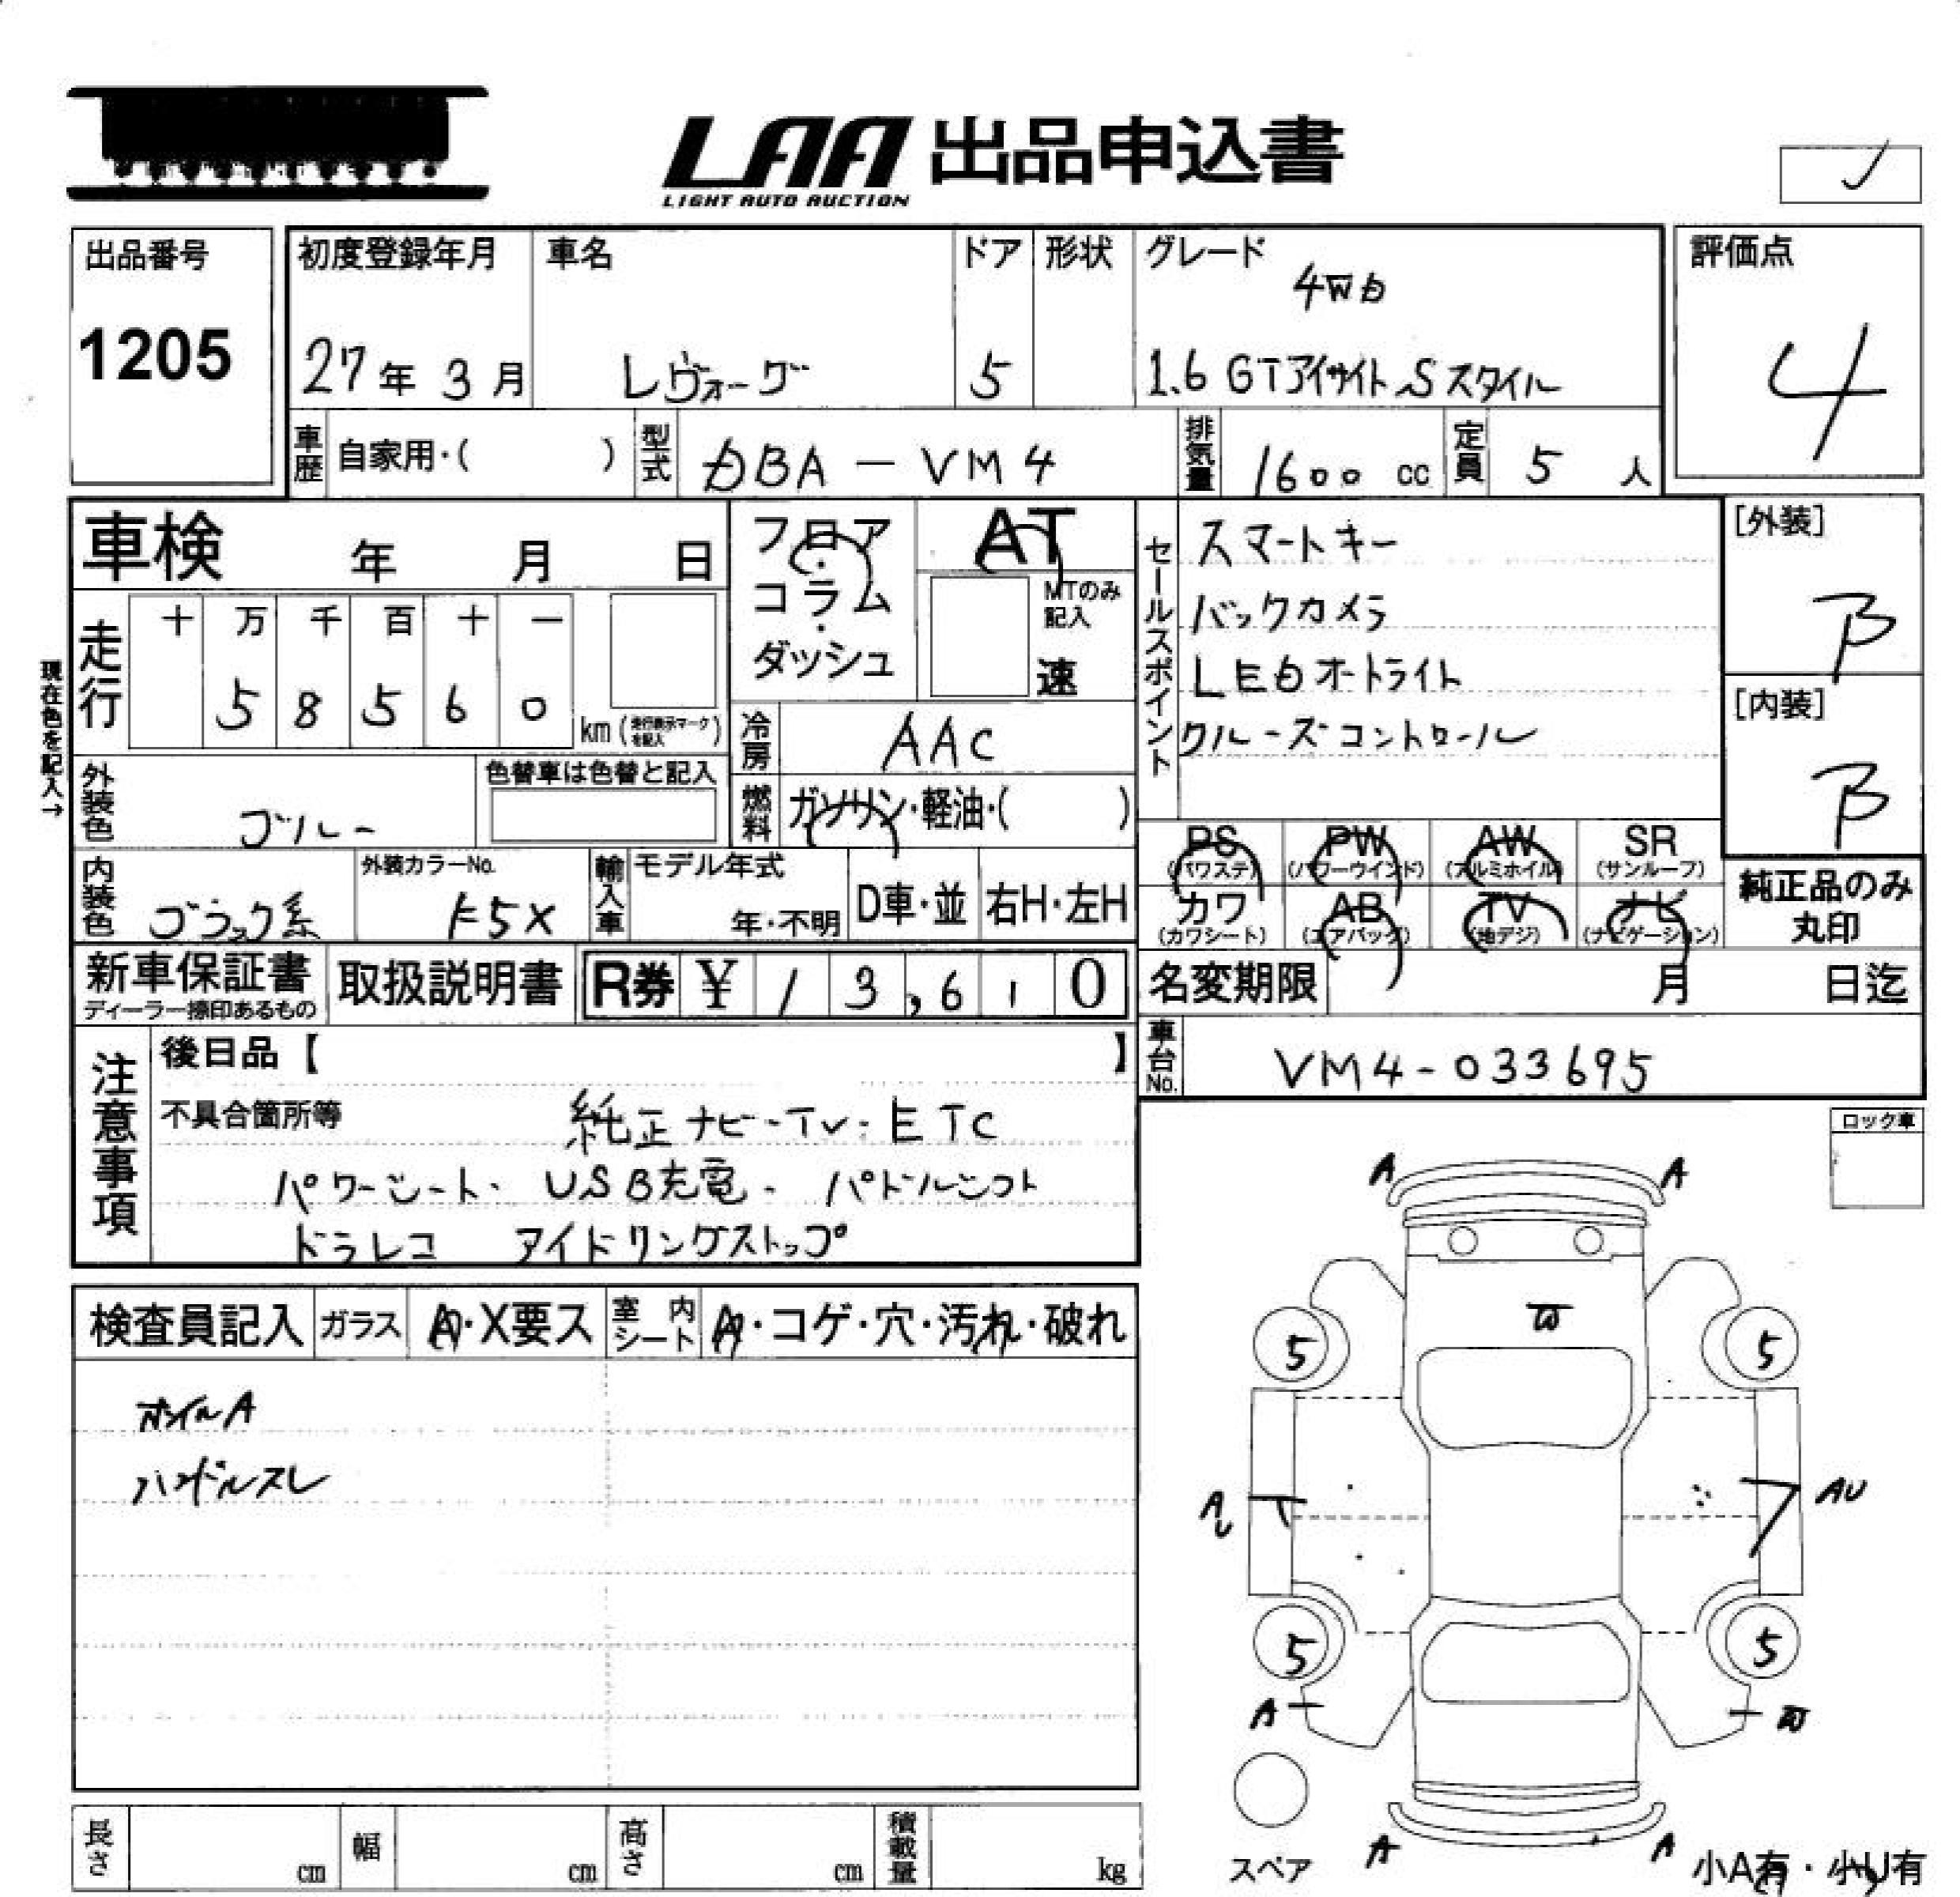 LAA 出品申込書
LIGHT AUTO AUCTION
出品番号
1205
初度登録年月
27年 3月
車名
レヴォーグ
ドア
5
形状
グレード
4WD
1.6 GTアイサイト Sスタイル
評価点
4
車歴
自家用・( )
型式
DBA - VM4
排気量
1600 cc
定員
5 人
車検 年 月 日
フロア・コラム・ダッシュ
AT
MTのみ記入
速
セールスポイント
スマートキー
バックカメラ
LEDオートライト
クルーズコントロール
[外装]
B
[内装]
B
現在色を記入→
走行
十 万 千 百 十 一
5 8 5 6 0
km (走行表示マークを記入)
冷房
AAC
外装色
ブルー
色替車は色替と記入
燃料
ガソリン・軽油・( )
PS
(パワステ)
PW
(パワーウインド)
AW
(アルミホイル)
SR
(サンルーフ)
カワ
(カワシート)
AB
(エアバッグ)
TV
(地デジ)
ナビ
(ナビゲーション)
純正品のみ
丸印
内装色
ブラック系
外装カラーNo.
K5X
輸入車
モデル年式
年・不明
D車・並
右H・左H
新車保証書
ディーラー捺印あるもの
取扱説明書
R券 ¥ 13,610
名変期限 月 日迄
車台No.
VM4-033695
注意事項
後日品【 】
不具合箇所等
純正ナビ・TV・ETC
パワーシート・ USB充電・ パドルシフト
ドラレコ アイドリングストップ
ロック車
検査員記入
ガラス
A・X要ス
室内シート
A・コゲ・穴・汚れ・破れ
ホイルA
ハンドルスレ
A A
5 5
AU
AU
5 5
A
スペア
A A
小A有・小U有
長さ cm
幅 cm
高さ cm
積載量 kg